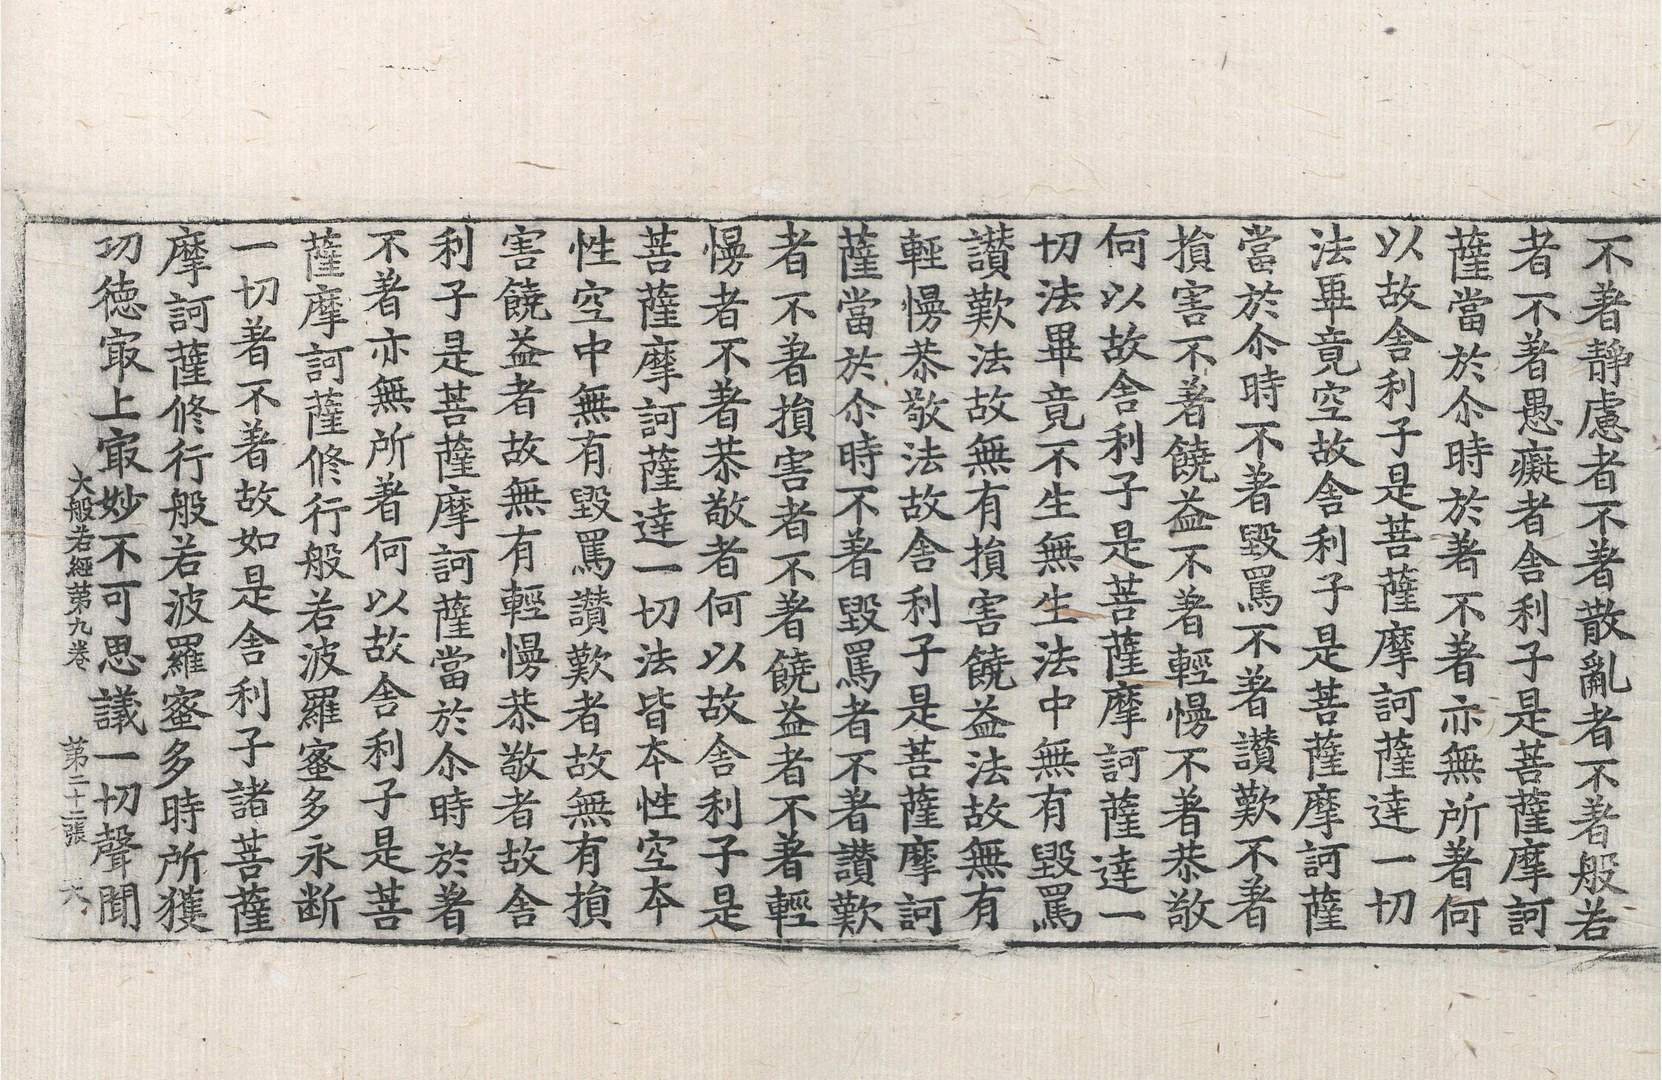 不著靜慮者不著散亂者不著般若
者不著愚癡者舍利子是菩薩摩訶
薩當於尒時於著不著亦無所著何
以故舍利子是菩薩摩訶薩達一切
法畢竟空故舍利子是菩薩摩訶薩
當於尒時不著毀罵不著讚歎不著
損害不著饒益不著輕慢不著恭敬
何以故舍利子是菩薩摩訶薩達一
切法畢竟不生無生法中無有毀罵
讚歎法故無有損害饒益法故無有
輕慢恭敬法故舍利子是菩薩摩訶
薩當於尒時不著毀罵者不著讚歎
者不著損害者不著饒益者不著輕
慢者不著恭敬者何以故舍利子是
菩薩摩訶薩達一切法皆本性空本
性空中無有毀罵讚歎者故無有損
害饒益者故無有輕慢恭敬者故舍
利子是菩薩摩訶薩當於尒時於著
不著亦無所著何以故舍利子是菩
薩摩訶薩修行般若波羅蜜多永断
一切著不著故如是舍利子諸菩薩
摩訶薩修行般若波羅蜜多時所獲
功徳㝡上㝡妙不可思議一切聲聞
大般若經第九卷 第二十二張 火